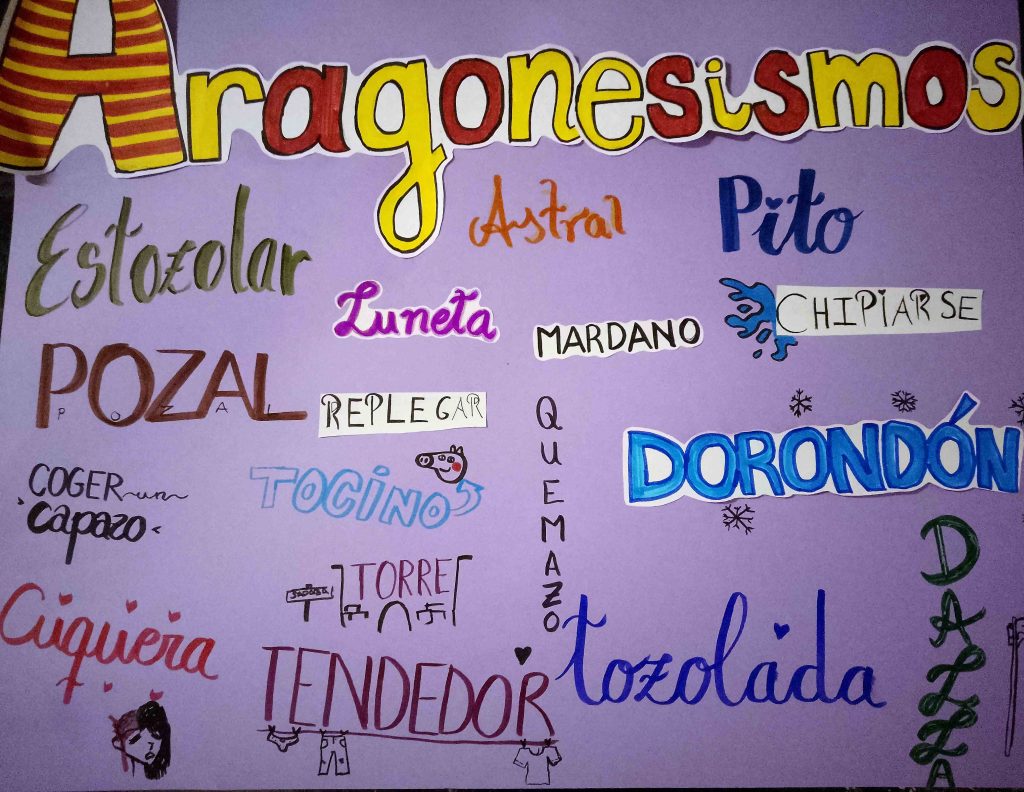 Aragonesismos
Estozolar
Astral
Pito
Luneta
MARDANO
CHIPIARSE
POZAL
POZAL
REPLEGAR
QUEMAZO
DORONDÓN
COGER un
capazo
TOCINO
TORRE
Cuquiera
TENDEDOR
tozolada
DALLA